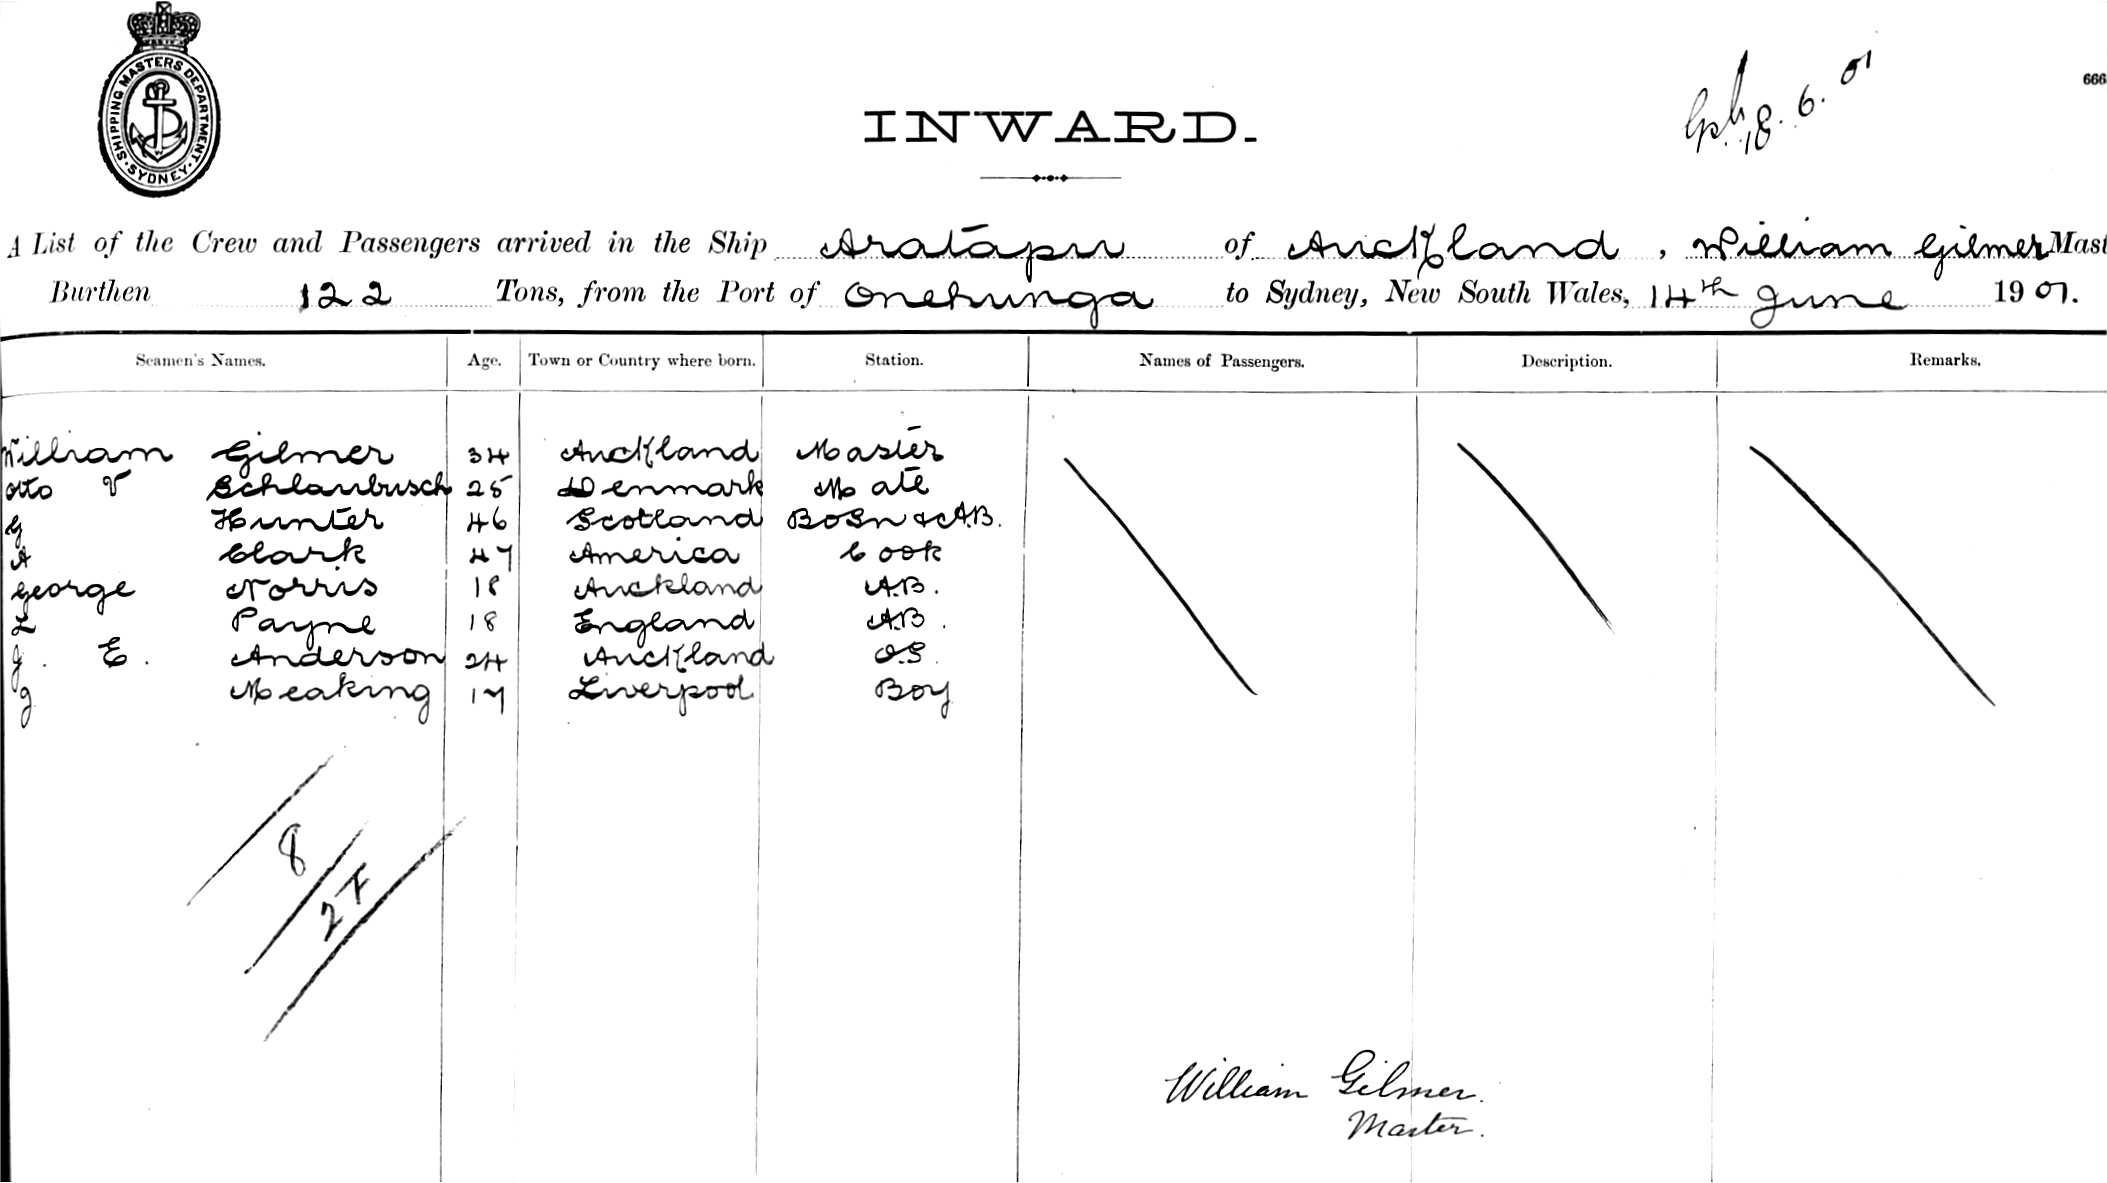 SHIPPING MASTERS DEPARTMENT. SYDNEY.
18. 6. 01
666
INWARD.
A List of the Crew and Passengers arrived in the Ship Aratapu of Auckland, William Gilmer Mast
Burthen 122 Tons, from the Port of Onehunga to Sydney, New South Wales, 14th June 1901.
Seamen's Names. Age. Town or Country where born. Station. Names of Passengers. Description. Remarks.
William Gilmer 34 Auckland Master
Otto V Schlaubusch 25 Denmark Mate
G Hunter 46 Scotland BoSn & A.B.
A Clark 47 America Cook
George Norris 18 Auckland A.B.
L Payne 18 England A.B.
J. E. Anderson 24 Auckland O.S.
J Meaking 17 Liverpool Boy
8
27
William Gilmer.
Master.